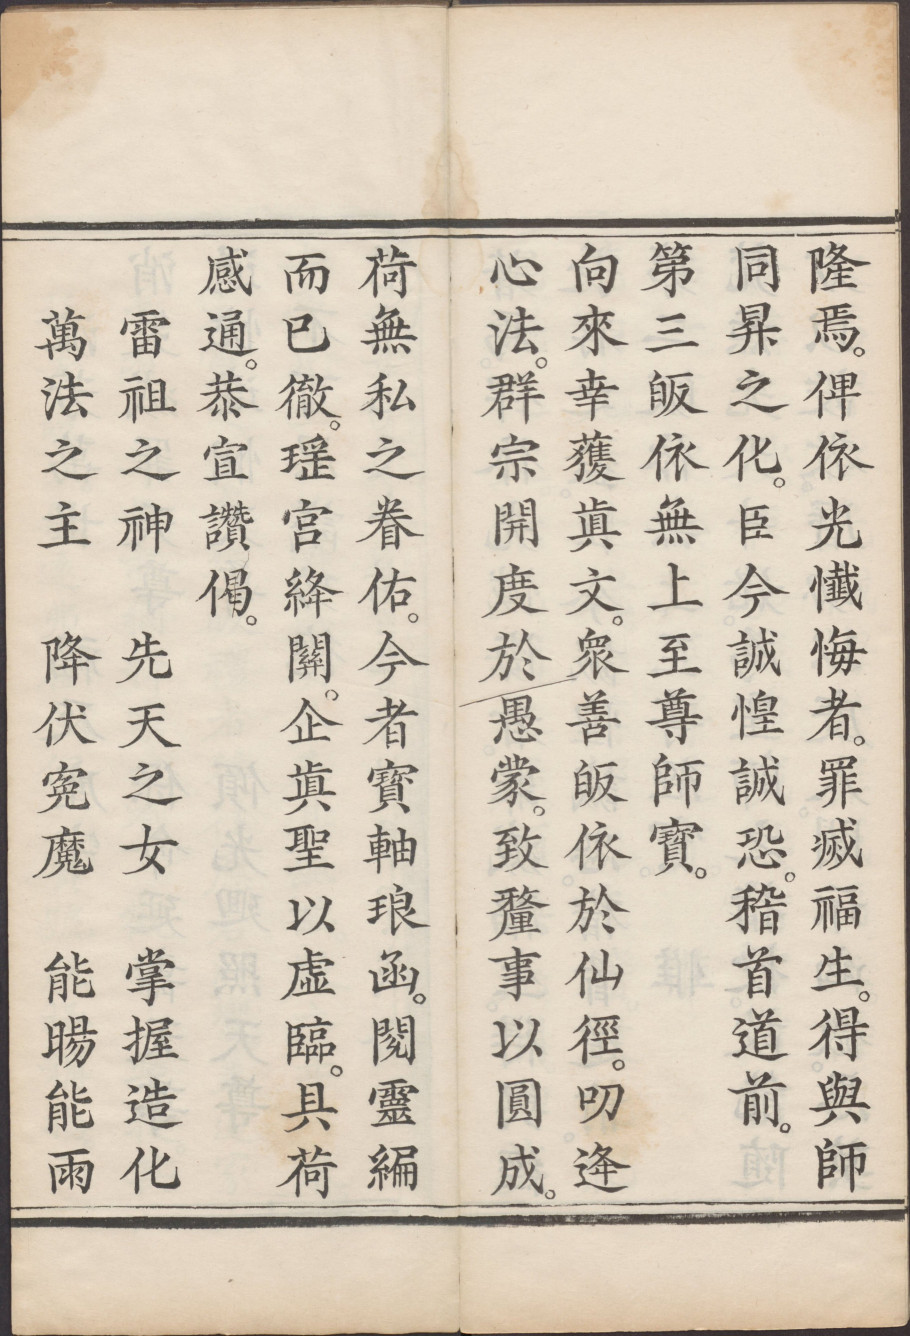 隆焉。俾依光懴悔者。罪㓕福生。得與師
同昇之化。臣今誠惶誠恐。稽首道前。
第三皈依無上至尊師寶。
向來幸獲眞文。衆善皈依於仙徑。叨逢
心法。群宗開度於愚蒙。致釐事以圓成。
荷無私之眷佑。今者寳軸琅函。閱靈編
而已徹。瑶宫絳闕。企眞聖以虚臨。具荷
感通。恭宣讚偈。
雷祖之神　先天之女　掌握造化
萬法之主　降伏寃魔　能暘能雨